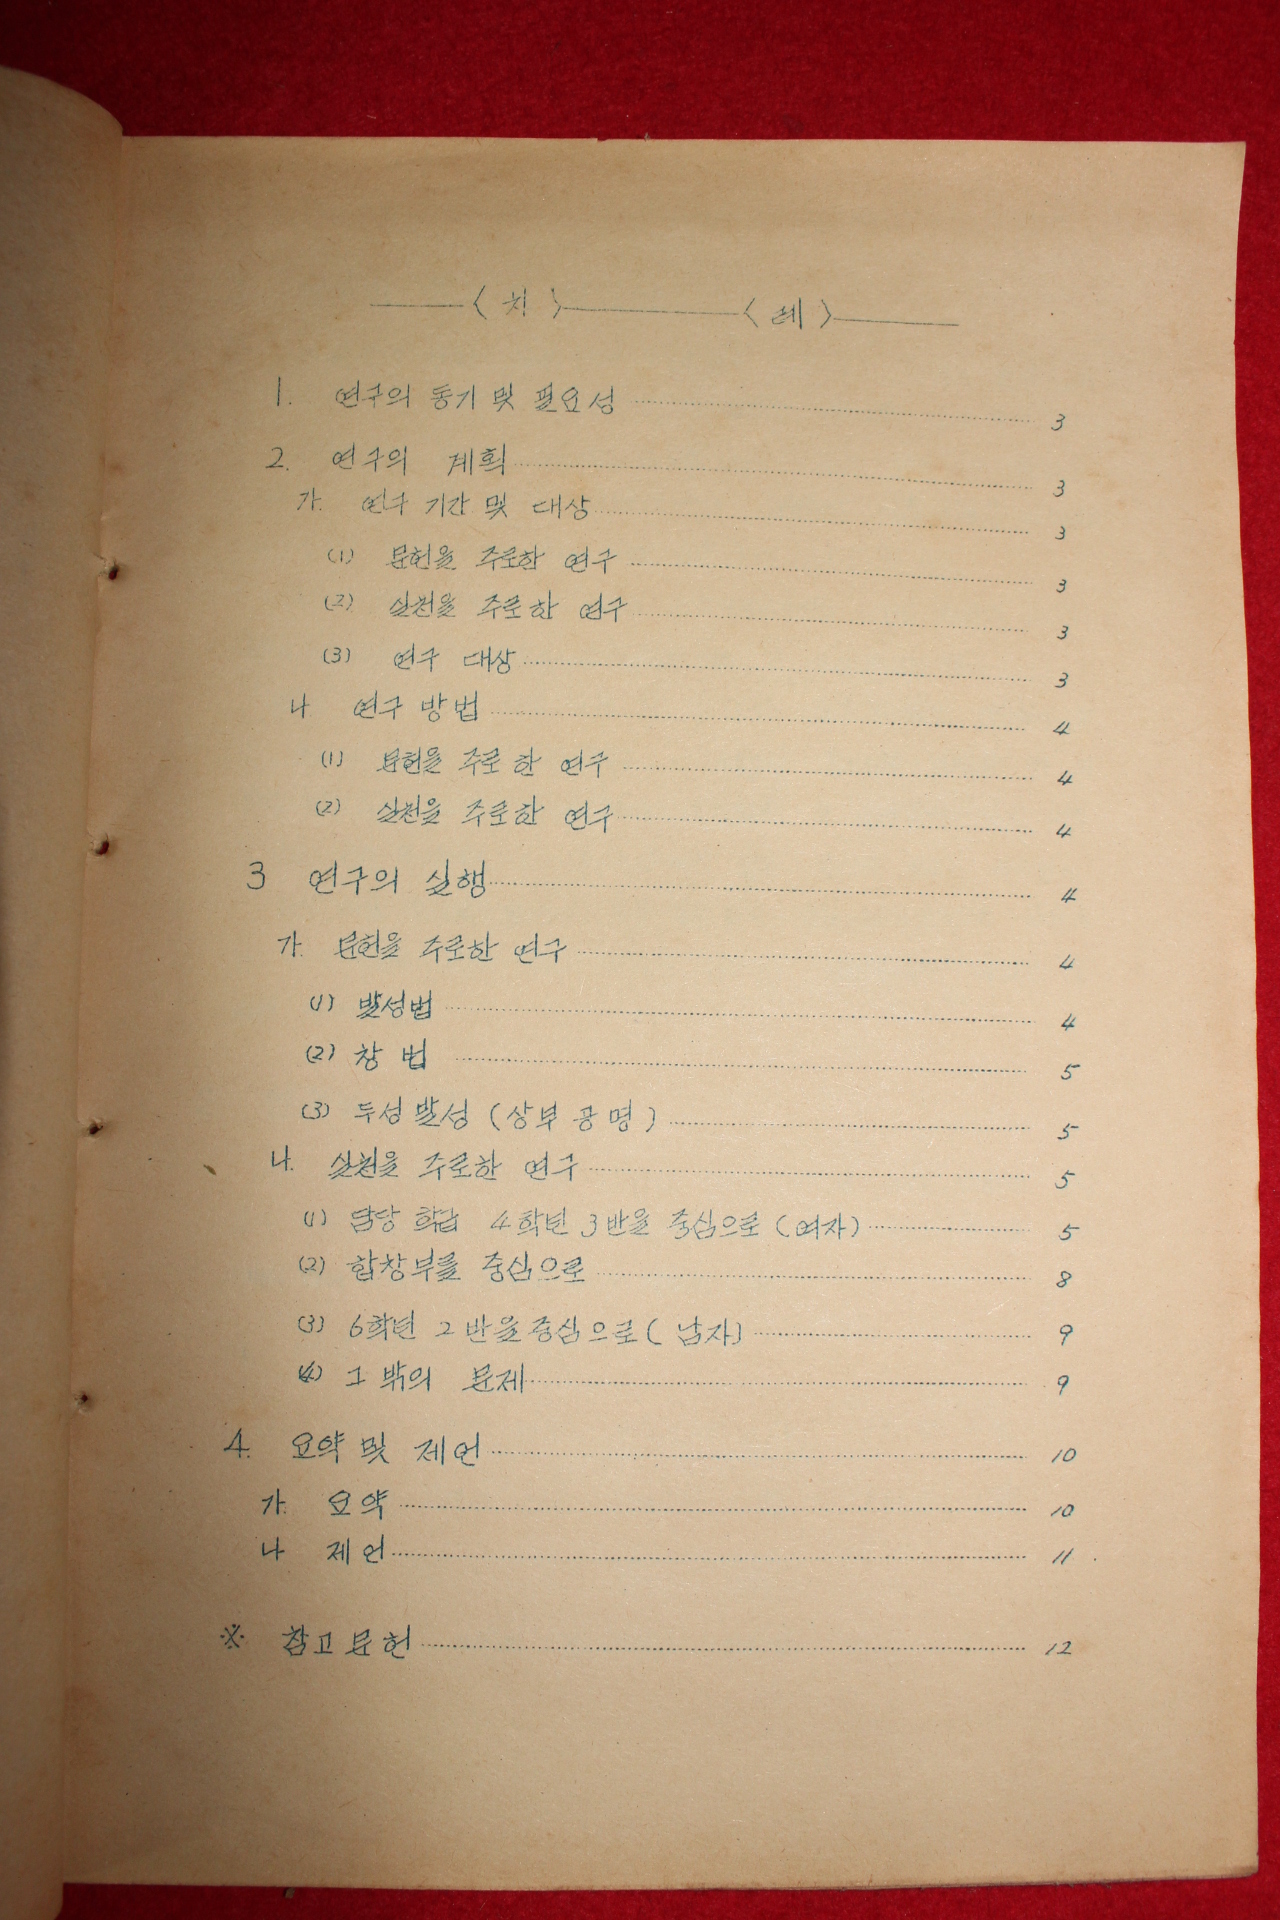 〈 차 〉 〈 례 〉
1. 연구의 동기 및 필요성 3
2. 연구의 계획 3
가. 연구 기간 및 대상 3
(1) 문헌을 주로한 연구 3
(2) 실천을 주로한 연구 3
(3) 연구 대상 3
나 연구 방법 4
(1) 문헌을 주로한 연구 4
(2) 실천을 주로한 연구 4
3 연구의 실행 4
가. 문헌을 주로한 연구 4
(1) 발성법 4
(2) 창법 5
(3) 두성발성 (상부 공명) 5
나. 실천을 주로한 연구 5
(1) 담당 학급 4학년 3반을 중심으로 (여자) 5
(2) 합창부를 중심으로 8
(3) 6학년 2반을 중심으로 (남자) 9
(4) 그 밖의 문제 9
4. 요약 및 제언 10
가. 요약 10
나 제언 11
※ 참고문헌 12